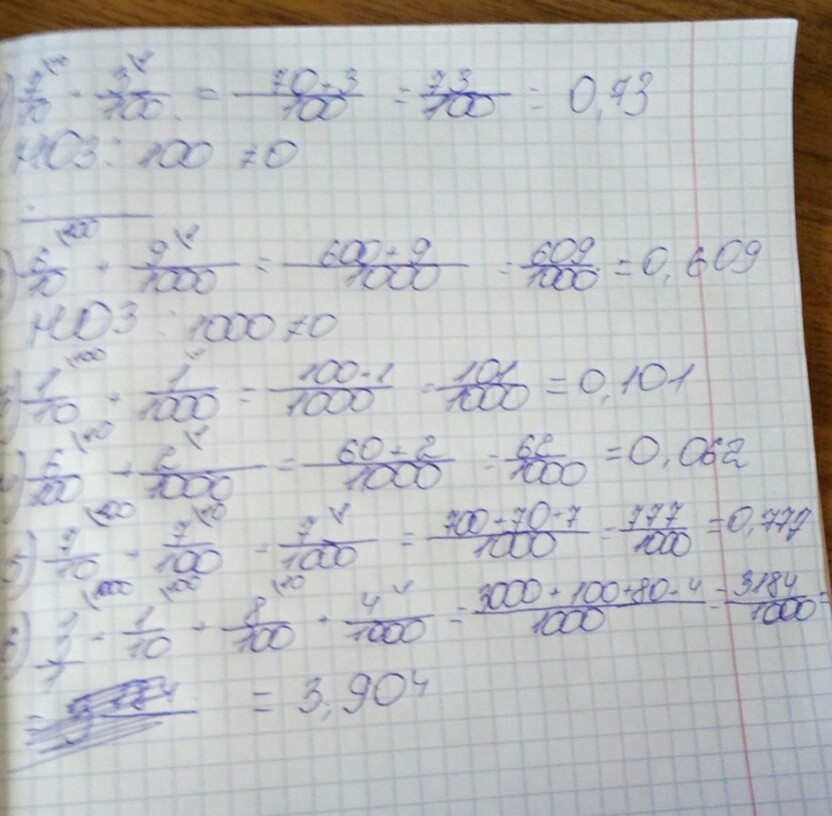 1) 7/10 + 3/100 = 70+3/100 = 73/100 = 0,73
НОЗ: 100 ≠ 0
2) 6/10 + 9/1000 = 600+9/1000 = 609/1000 = 0,609
НОЗ: 1000 ≠ 0
3) 1/10 + 1/1000 = 100+1/1000 = 101/1000 = 0,101
4) 6/100 + 2/1000 = 60+2/1000 = 62/1000 = 0,062
5) 7/10 + 7/100 + 7/1000 = 700+70+7/1000 = 777/1000 = 0,777
6) 3/1 + 1/10 + 8/100 + 4/1000 = 3000+100+80+4/1000 = 3184/1000 =
= 3,904